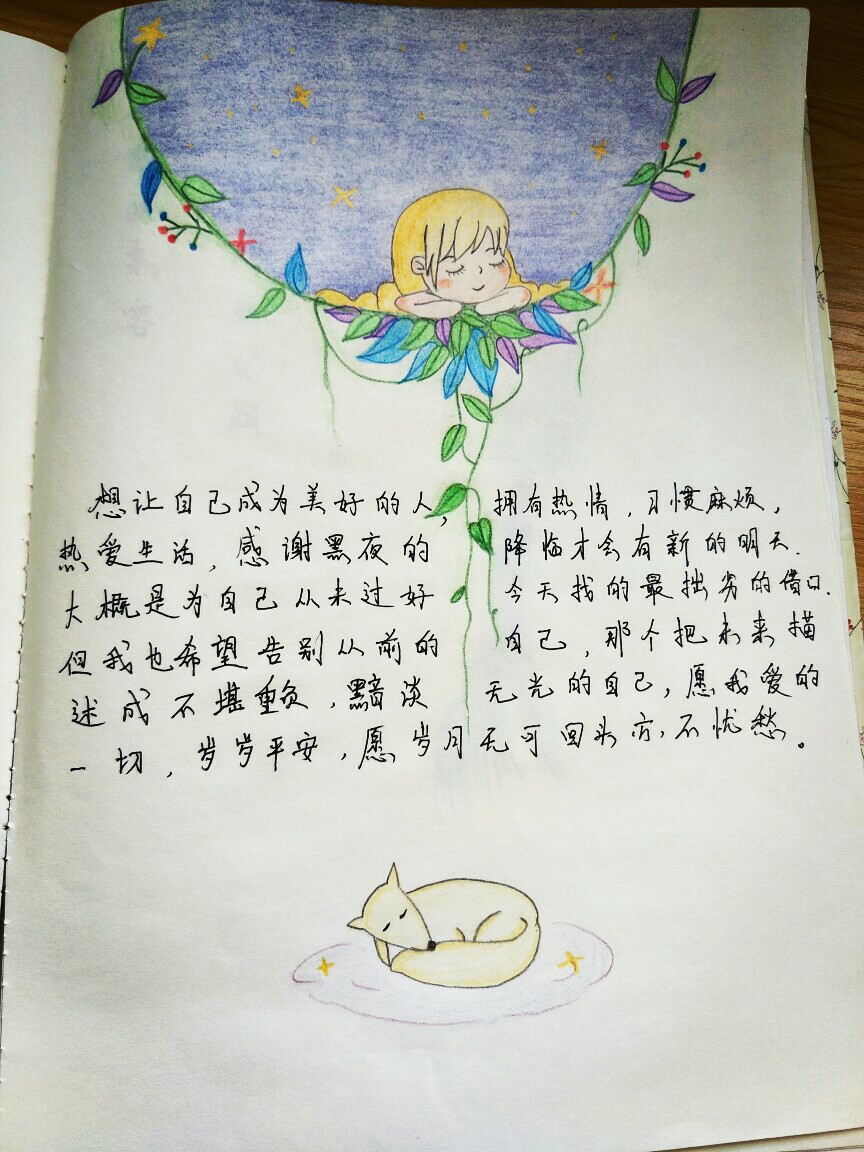 想让自己成为美好的人，拥有热情，习惯麻烦，
热爱生活，感谢黑夜的降临才会有新的明天．
大概是为自己从未过好今天找的最拙劣的借口．
但我也希望告别从前的自己，那个把未来描
述成不堪重负，黯淡无光的自己，愿我爱的
一切，岁岁平安，愿岁月无可回头，亦不忧愁。